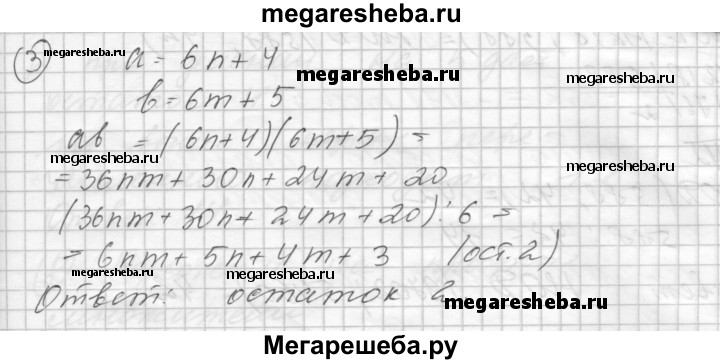 megaresheba.ru
③ a = 6n + 4
megaresheba.ru
megaresheba.ru
b = 6m + 5
ab = (6n+4)(6m+5) =
megaresheba.ru
megaresheba.ru
= 36nm + 30n + 24m + 20
(36nm + 30n + 24m + 20) : 6 =
= 6nm + 5n + 4m + 3 (ост. 2)
megaresheba.ru
Ответ: остаток 2
megaresheba.ru
megaresheba.ru
Мегарешеба.ру